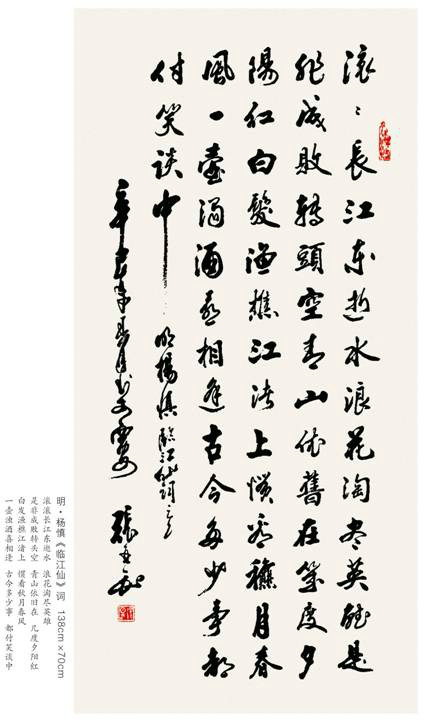 滚〻長江东逝水浪花淘尽英雄是
非成敗轉頭空青山依舊在幾度夕
陽红白髮漁樵江渚上慣看穐月春
風一壺濁酒喜相逢古今多少事都
付笑談中 明楊慎臨江仙詞
明·杨慎《临江仙》词 138cm×70cm
滚滚长江东逝水 浪花淘尽英雄
是非成败转头空 青山依旧在 几度夕阳红
白发渔樵江渚上 惯看秋月春风
一壶浊酒喜相逢 古今多少事 都付笑谈中